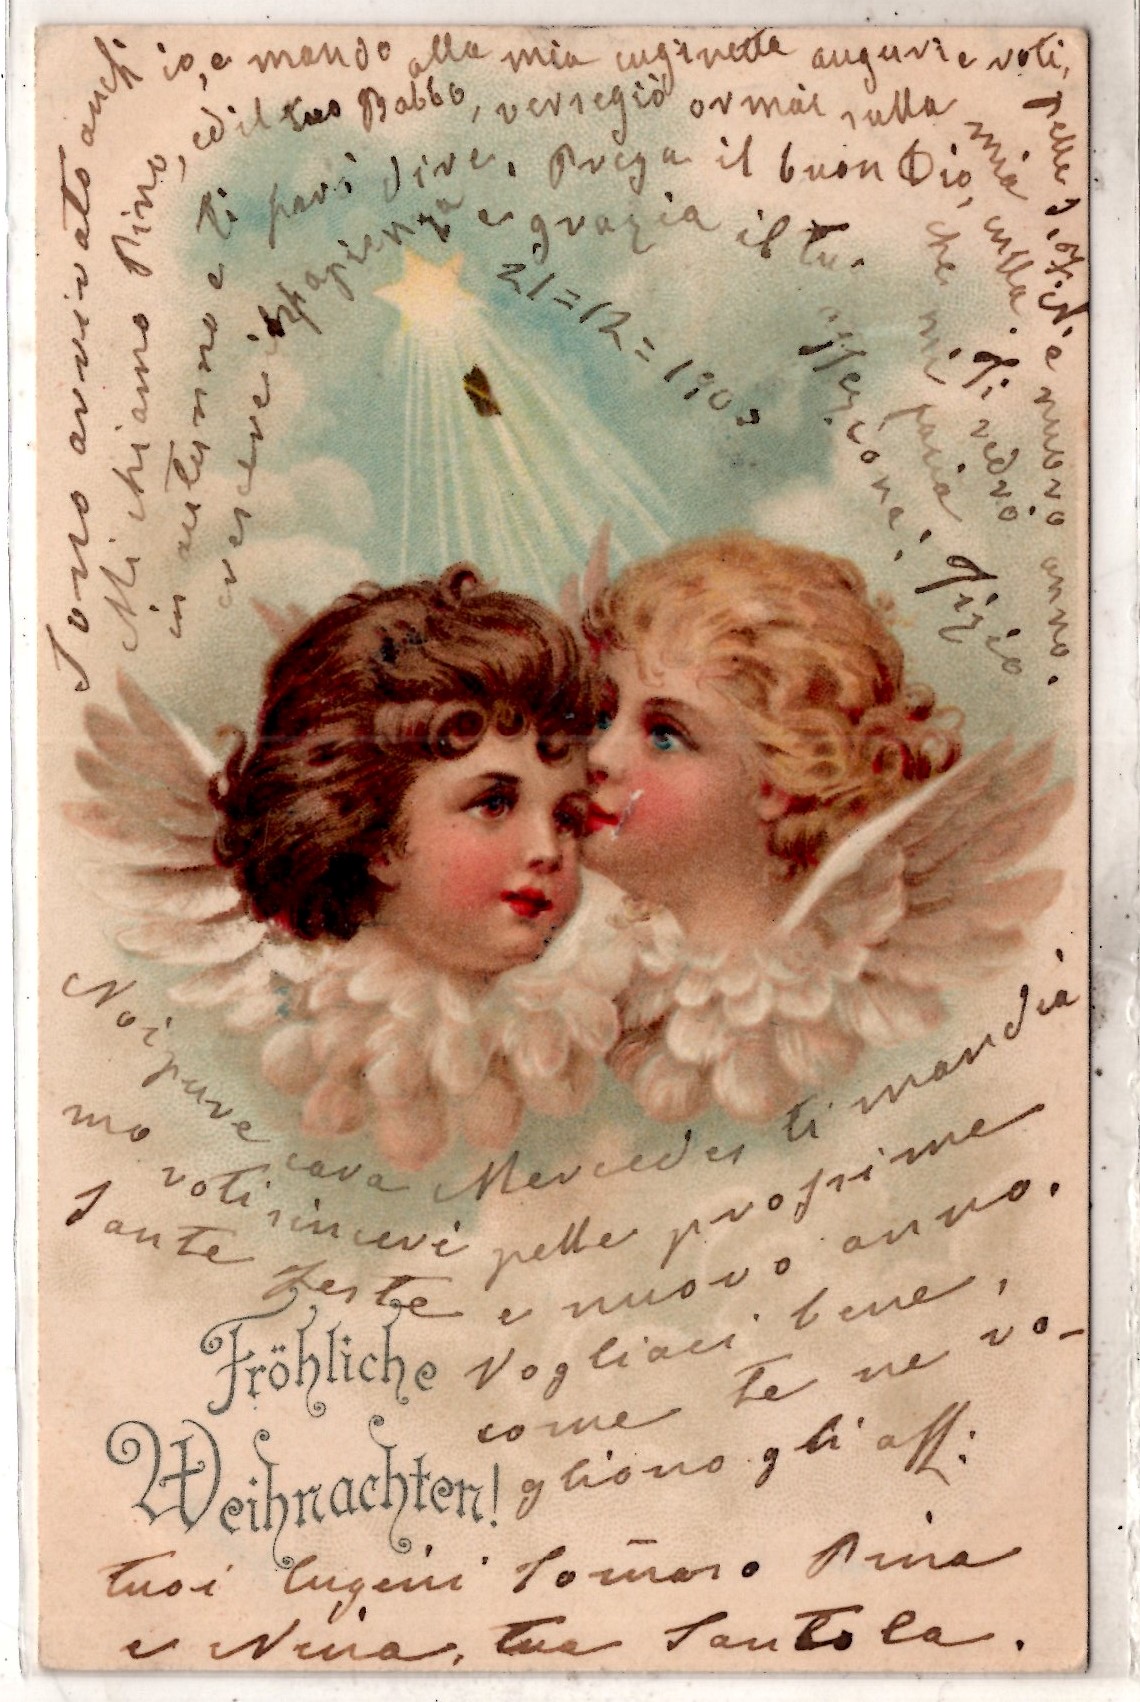 Sono arrivato anch' io, e mando alla mia cuginetta auguri e voti,
pelle s. feste e nuovo anno.
Mi chiamo Pino, ed il tuo Babbo, versegiò ormai sulla mia culla. Ti vedrò
in autunno e ti farò dire. Prega il buon Dio, che mi faccia
crescere in sapienza e grazia il tu.
affeziona: Tizio
21=12=1903
Noi pure cara Mercedes ti mandia
mo voti sinceri pelle prossime
Sante Feste e nuovo anno.
Vogliaci bene,
come te ne vo-
gliono gli aff:
tuoi Cugini Tomaso Pina
e Nina, tua Santola.
Fröhliche
Weihnachten!